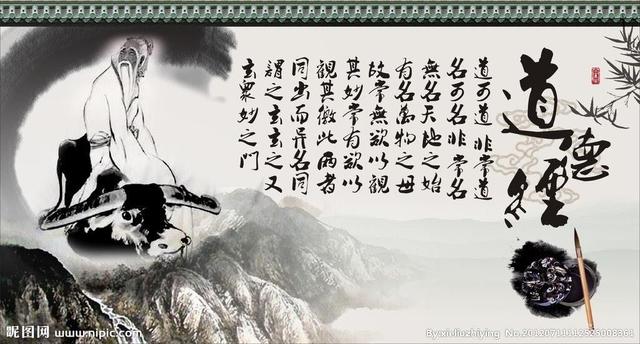 道德經
道可道 非常道
名可名非常名
無名天地之始
有名萬物之母
故常無欲以觀
其妙常有欲以
觀其徼此兩者
同出而异名同
謂之玄玄之又
玄眾妙之門
昵图网 www.nipic.com
By:xiuliuzhiying No.20120711112525008361